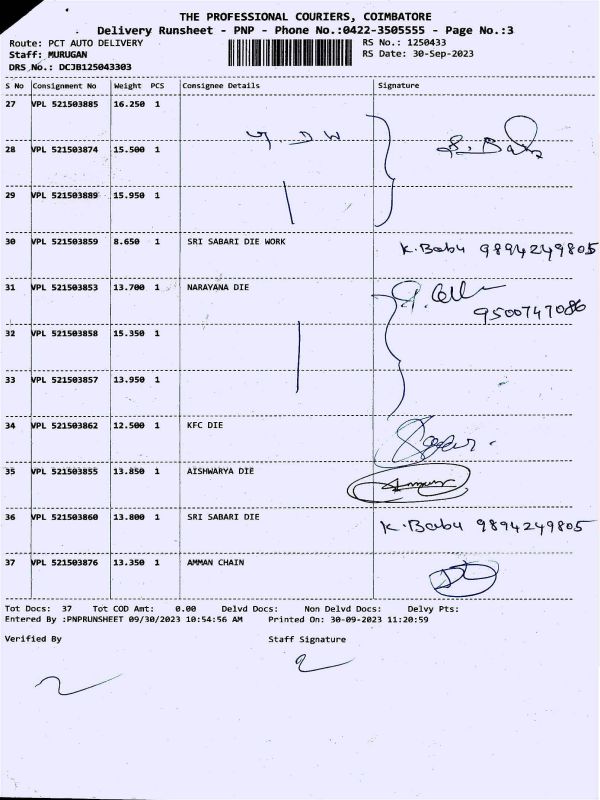 THE PROFESSIONAL COURIERS, COIMBATORE
Delivery Runsheet - PNP - Phone No.:0422-3505555 - Page No.:3
Route: PCT AUTO DELIVERY RS No.: 1250433
Staff: MURUGAN RS Date: 30-Sep-2023
DRS No.: DCJB125043303
S No Consignment No Weight PCS Consignee Details Signature
27 VPL 521503885 16.250 1
28 VPL 521503874 15.500 1
29 VPL 521503889 15.950 1
30 VPL 521503859 8.650 1 SRI SABARI DIE WORK K.Babu 9894249805
31 VPL 521503853 13.700 1 NARAYANA DIE
9500747086
32 VPL 521503858 15.350 1
33 VPL 521503857 13.950 1
34 VPL 521503862 12.500 1 KFC DIE
35 VPL 521503855 13.850 1 AISHWARYA DIE
36 VPL 521503860 13.800 1 SRI SABARI DIE K.Babu 9894249805
37 VPL 521503876 13.350 1 AMMAN CHAIN
Tot Docs: 37 Tot COD Amt: 0.00 Delvd Docs: Non Delvd Docs: Delvy Pts:
Entered By :PNPRUNSHEET 09/30/2023 10:54:56 AM Printed On: 30-09-2023 11:20:59
Verified By Staff Signature